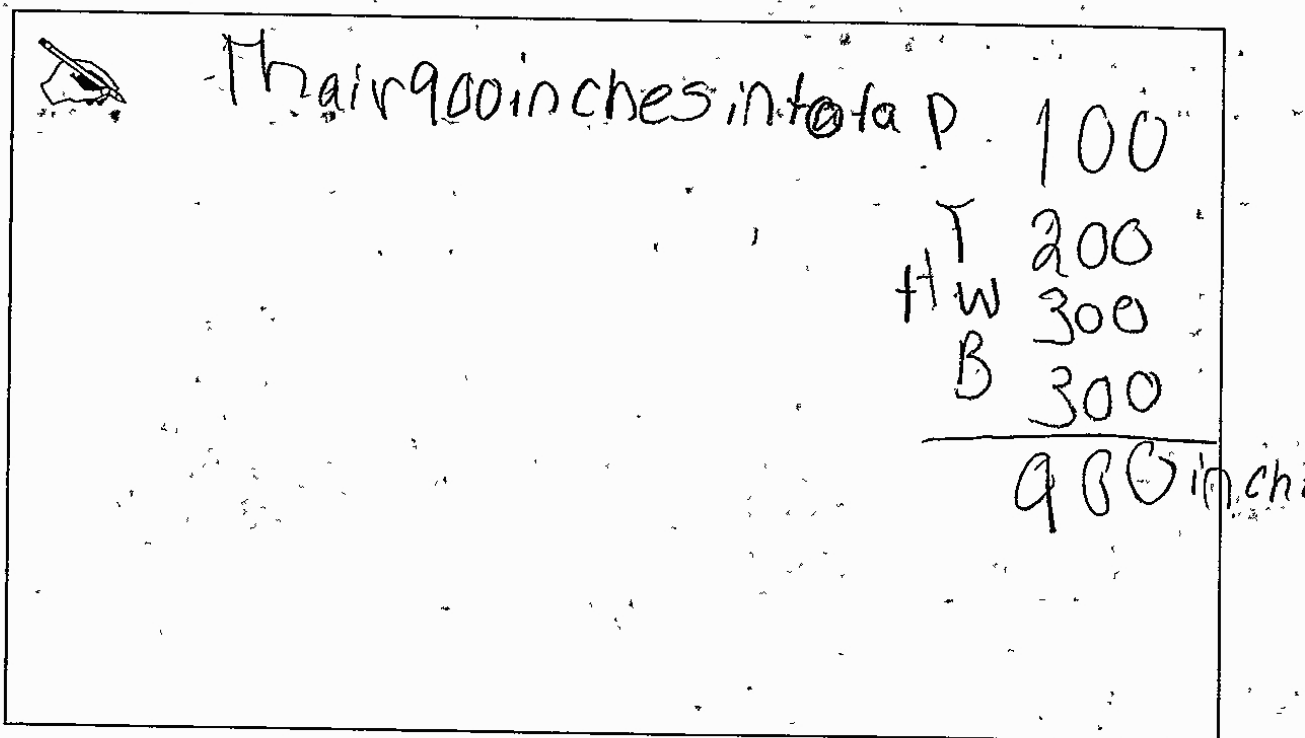 Thair 900 inches in tota
P 100
T 200
+ W 300
B 300
900 inch